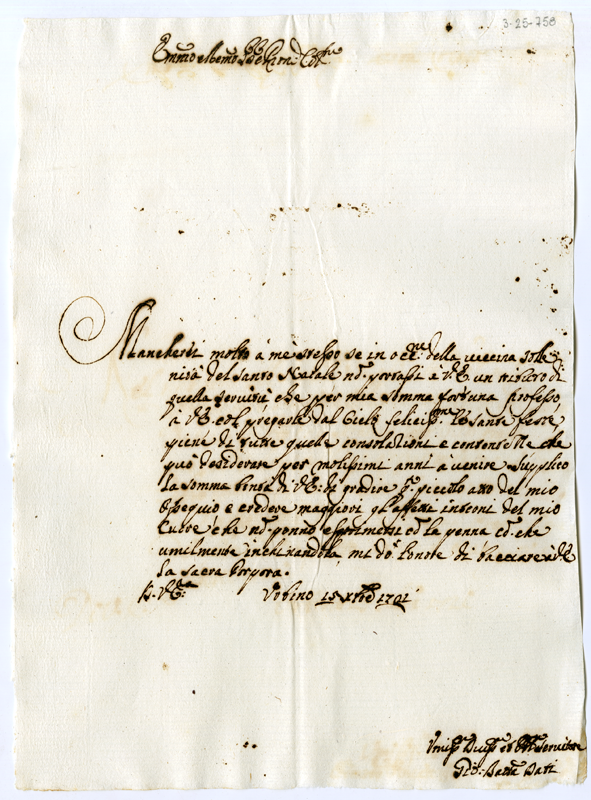 3-25-758
Em̃mo e Rem̃o Sig.re
Mancherei molto à me stesso se in occ.ne della vicina Solle=
nità del santo Natale nõ portassi à V.E. un tributo di
quella servitù che per mia somma fortuna professo
à V.E. col pregarle dal Cielo feliciss.me le sante feste
piene di tutte quelle consolationi e contentezze che
può desiderare per moltissimi anni à venire. Supplico
la somma bontà di V.E. di gradire q.o piccolo atto del mio
Ossequio e credere maggiori gl'affetti interni del mio
Cuore che nõ ponno esprimersi cõ la penna cõ che
umilmente inchinandola mi dò l'onore di bacciare à V.E.
la sacra Porpora.
D. V.E. Urbino 15 Xbre 1701
Umiliss. Devotiss. et Servitore
Gio: Batta